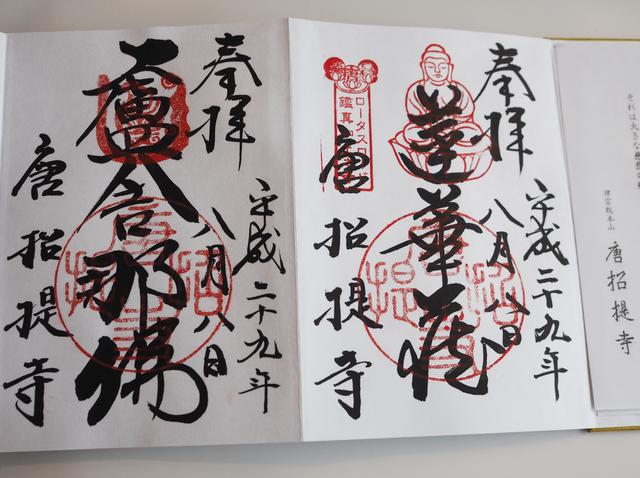 それは大きな
律宗総本山
唐招提寺
奉拝
平成二十九年
八月八日
蓮華蔵
ロータスロ
鑑真
唐招提寺
奉拝
平成二十九年
八月八日
盧舎那佛
唐招提寺